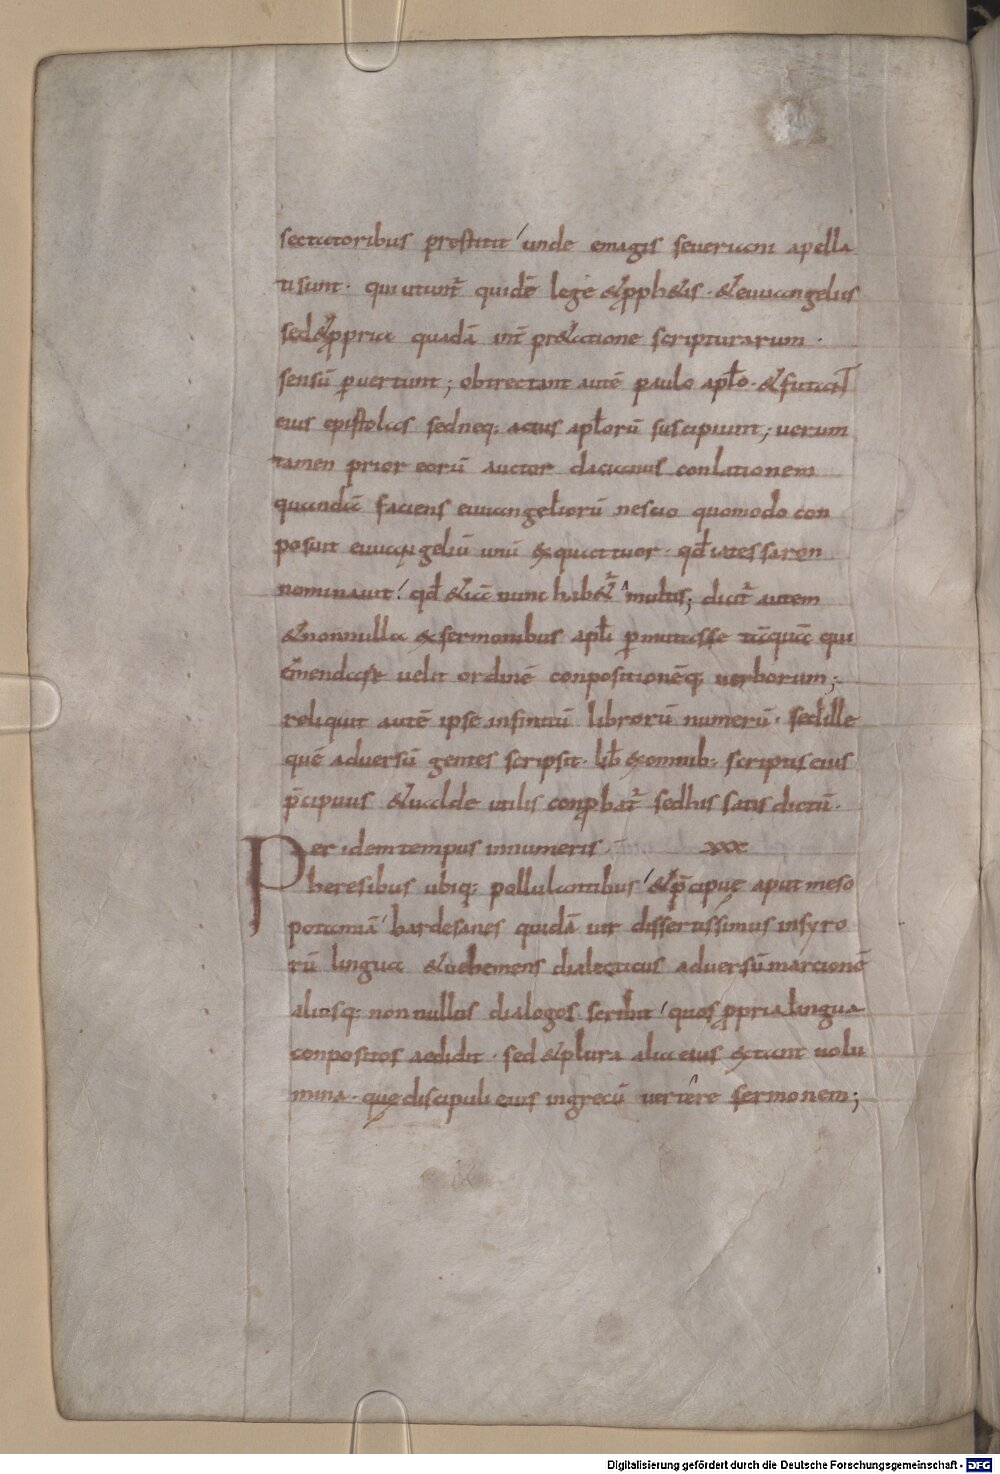 sectatoribus prestitit unde emagis seueriani apella
ti sunt · qui utunt̄ quidē lege &pph&is · &euuangeliis
sed &ppria quadā int̄ pr&atione scripturarum ·
sensū puertunt ; obtrectant autē paulo apl̄o · &futant
eius epistolas sed neq; actus apl̄orū suscipiunt ; uerum
tamen prior eorū auctor dacianus conlationem
quandā faciens euuangeliorū nescio quomodo con
posuit euuangeliū unū ex quattuor · qd̄ iatessaron
nominauit ! qd̄ &iā nunc hab&ur a multis ; dicit̄ autem
&nonnulla ex sermonibus apl̄i pmutasse tāquā qui
emendare uelit ordinē conpositionēq; uerborum ;
reliquit autē ipse infinitū librorū numerū · sed ille
quē aduersū gentes scripsit · lib̄ ex omnib; scriptis eius
p̄cipuus &ualde utilis conpbat̄ sed his satis dictū ·
Per idem tempus innumeris · xxx
heresibus ubiq; pollulantibus &p̄cipuę aput meso
potamiā bardesanes quidā uir dissertissimus in syro
rū lingua &uehemens dialecticus aduersū marcionē
aliosq; nonnullos dialogos scribit quos ppria lingua
conpositos aedidit · sed &plura alia eius extant uolu
mina · quę discipuli eius in grecū uertere sermonem ;
Digitalisierung gefördert durch die Deutsche Forschungsgemeinschaft - DFG